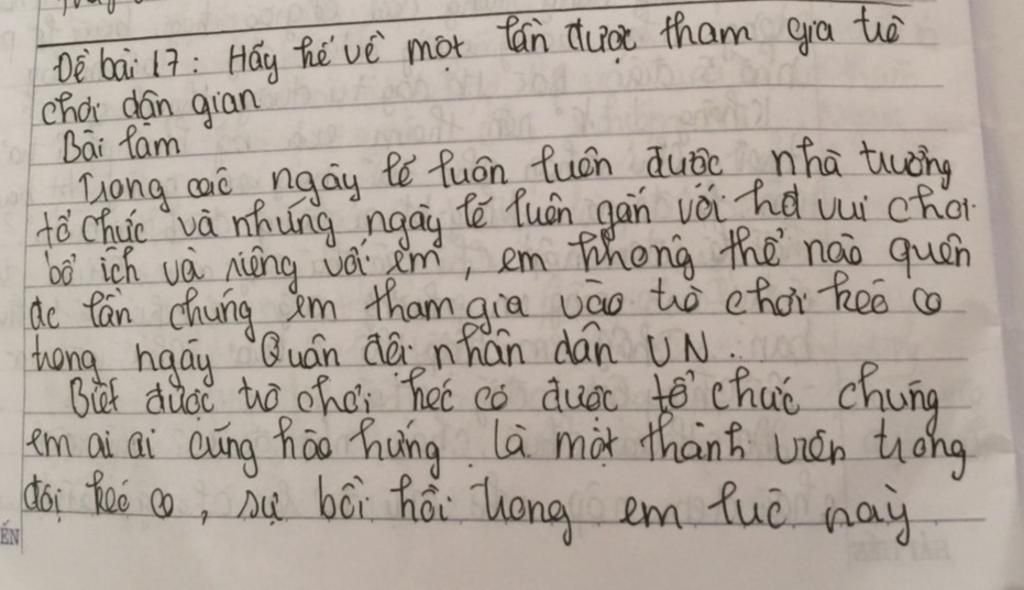 Đề bài 17: Hãy kể về một lần được tham gia trò
chơi dân gian
Bài làm
Trong các ngày lễ luôn luôn được nhà trường
tổ chức và những ngày lễ luôn gắn với hđ vui chơi
bổ ích và riêng với em, em không thể nào quên
đc lần chúng em tham gia vào trò chơi kéo co
trong ngày Quân đội nhân dân VN.
Biết được trò chơi kéo co được tổ chức chúng
em ai ai cũng hào hứng. là một thành viên trong
đội kéo co, sự bồi hồi trong em lúc này